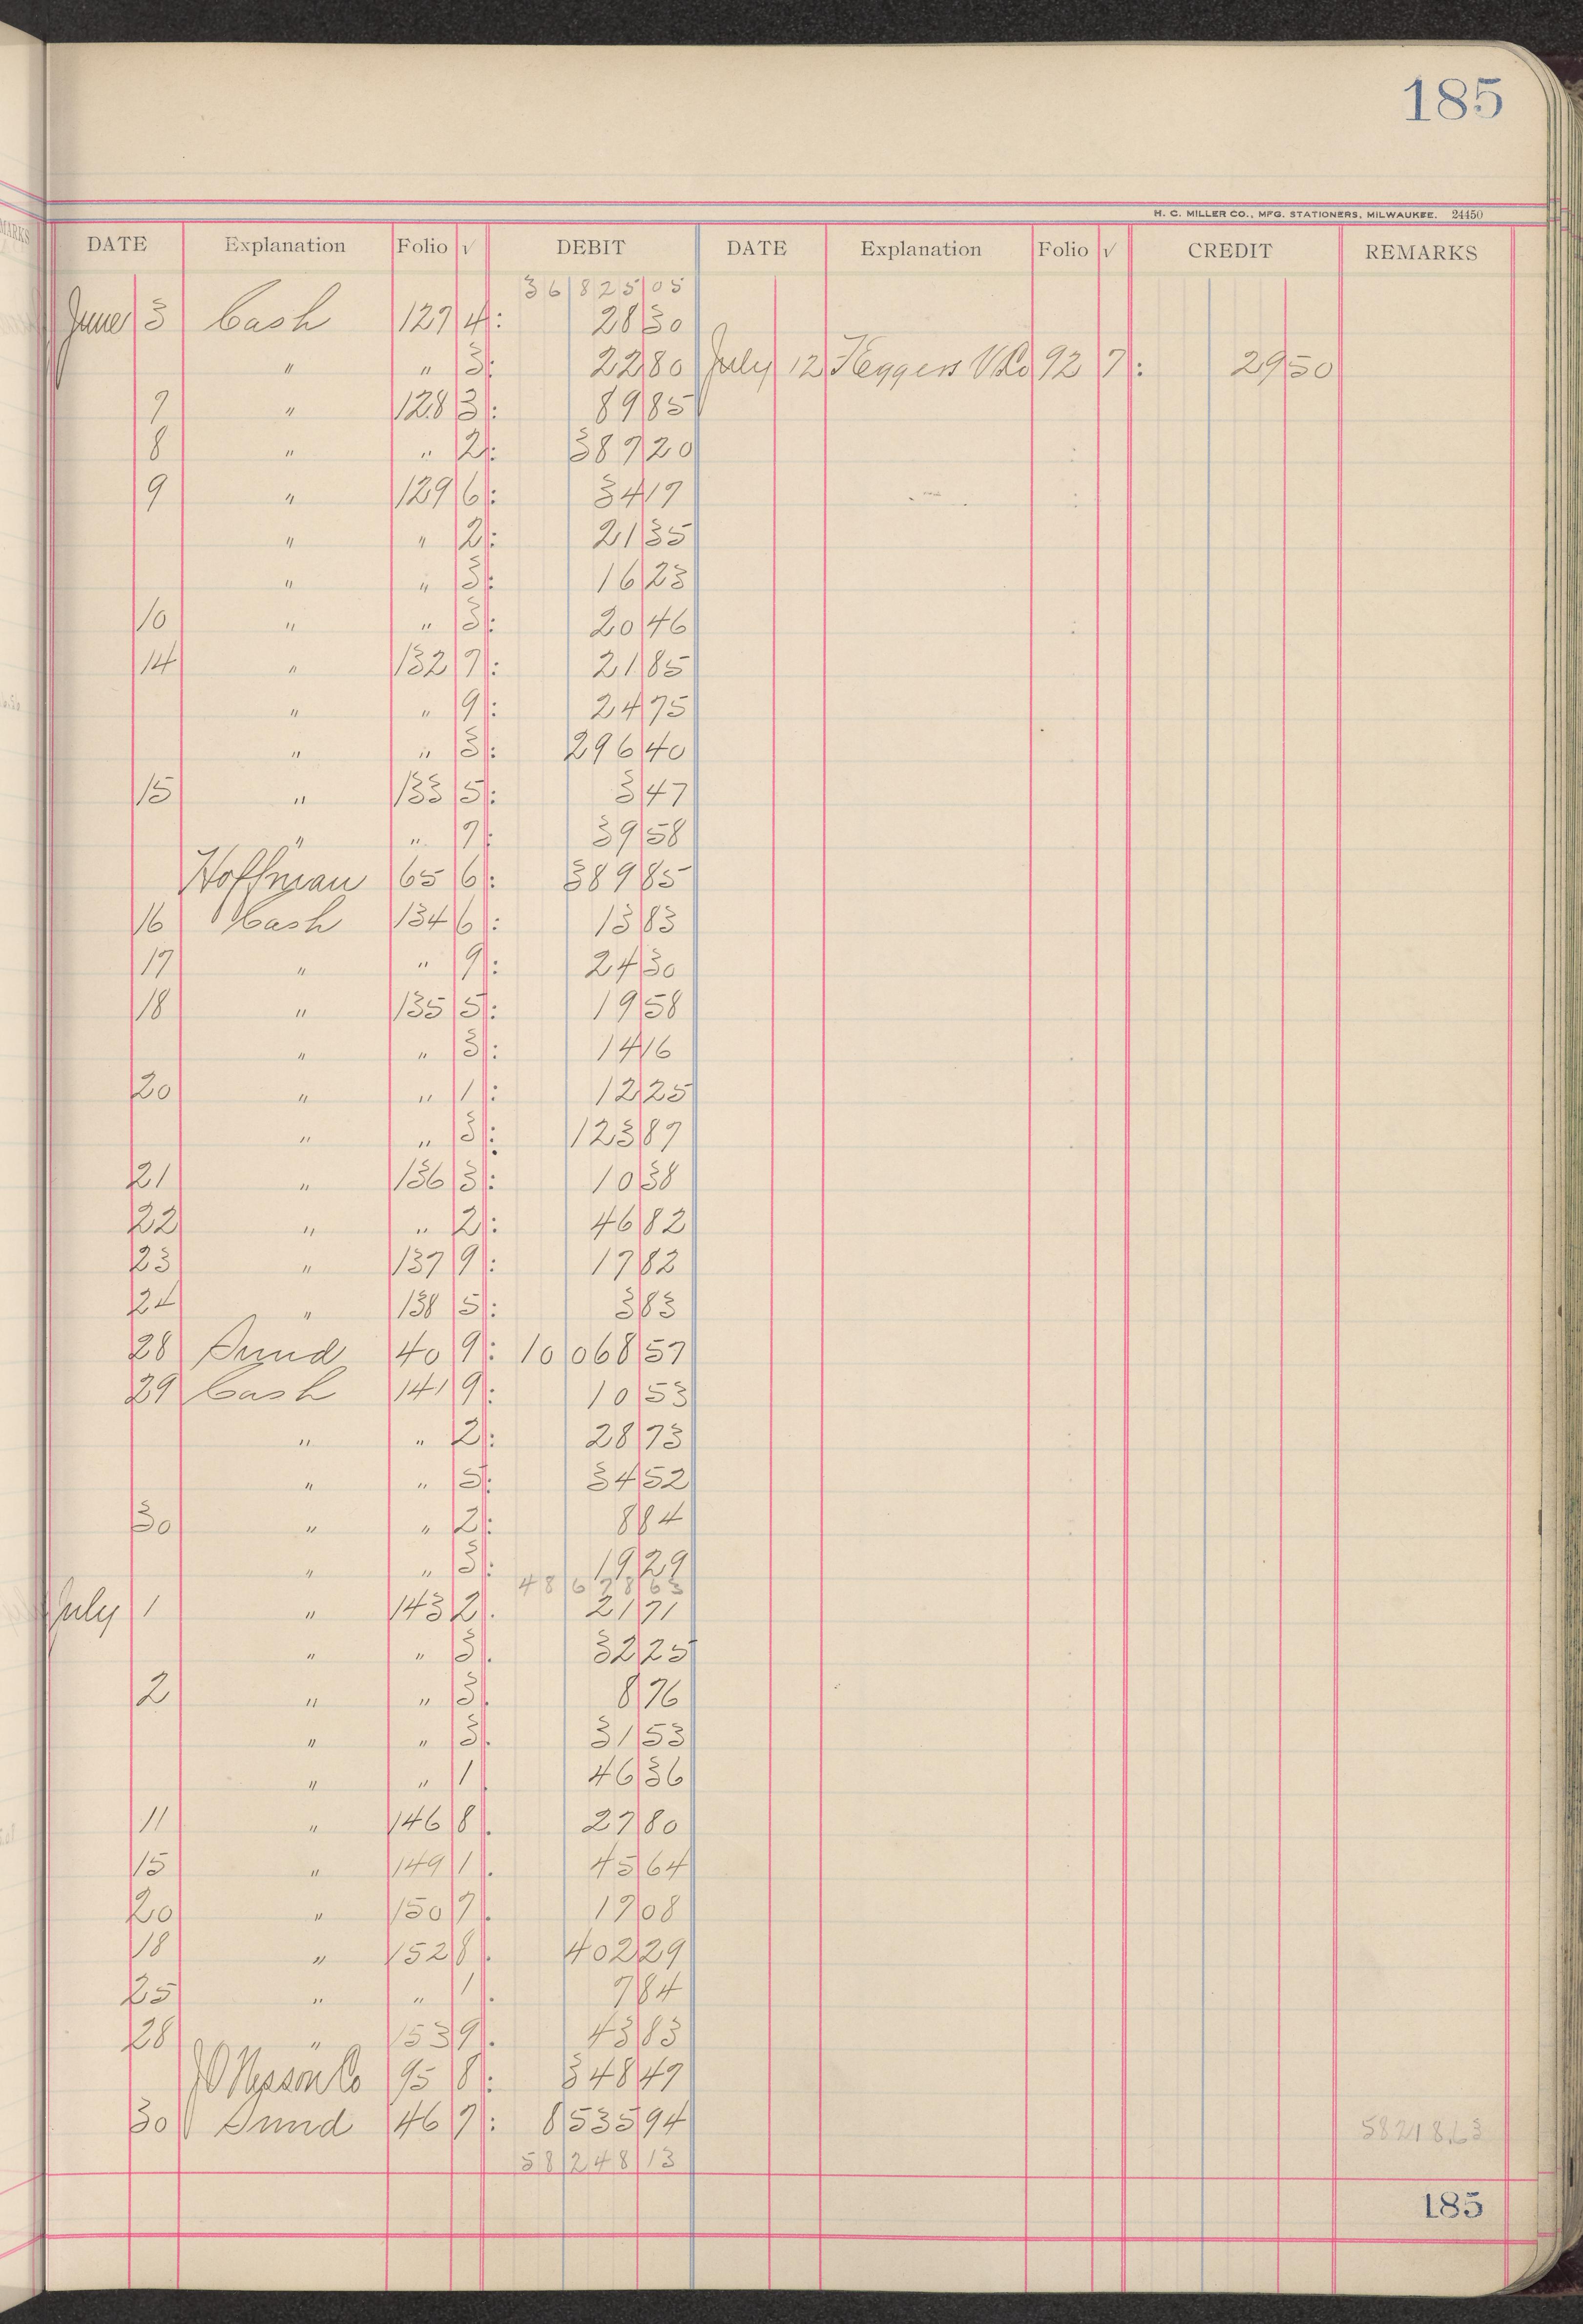 185
H. C. MILLER CO., MFG. STATIONERS, MILWAUKEE. 24450
DATE Explanation Folio √ DEBIT DATE Explanation Folio √ CREDIT REMARKS
36 825 05
June 3 Cash 127 4: 28 30
" " 3: 22 80 July 12 92 7: 29 50
7 " 128 3: 89 85
8 " " 2: 387 20
9 " 129 6: 34 17
" " 2: 21 35
" " 3: 16 23
10 " " 3: 20 46
14 " 132 7: 21 85
" " 9: 24 75
" " 3: 296 40
15 " 133 5: 3 47
" " 7: 39 58
Hoffman 65 6: 389 85
16 Cash 134 6: 13 83
17 " " 9: 24 30
18 " 135 5: 19 58
" " 3: 14 16
20 " " 1: 12 25
" " 3: 123 87
21 " 136 3: 10 38
22 " " 2: 46 82
23 " 137 9: 17 82
24 " 138 5: 3 83
28 Sund 40 9: 10 068 57
29 Cash 141 9: 10 53
" " 2: 28 73
" " 5: 34 52
30 " " 2: 8 84
" " 3: 19 29
48 678 63
July 1 " 143 2. 21 71
" " 3. 32 25
2 " " 3. 8 76
" " 3. 31 53
" " 1 46 36
11 " 146 8. 27 80
15 " 149 1. 45 64
20 " 150 7. 17 08
18 " 152 8. 402 29
25 " " 1. 7 84
28 " 153 9. 43 83
95 8: 348 47
30 Sund 46 7: 8 535 94
58 248 13
58218.63
185